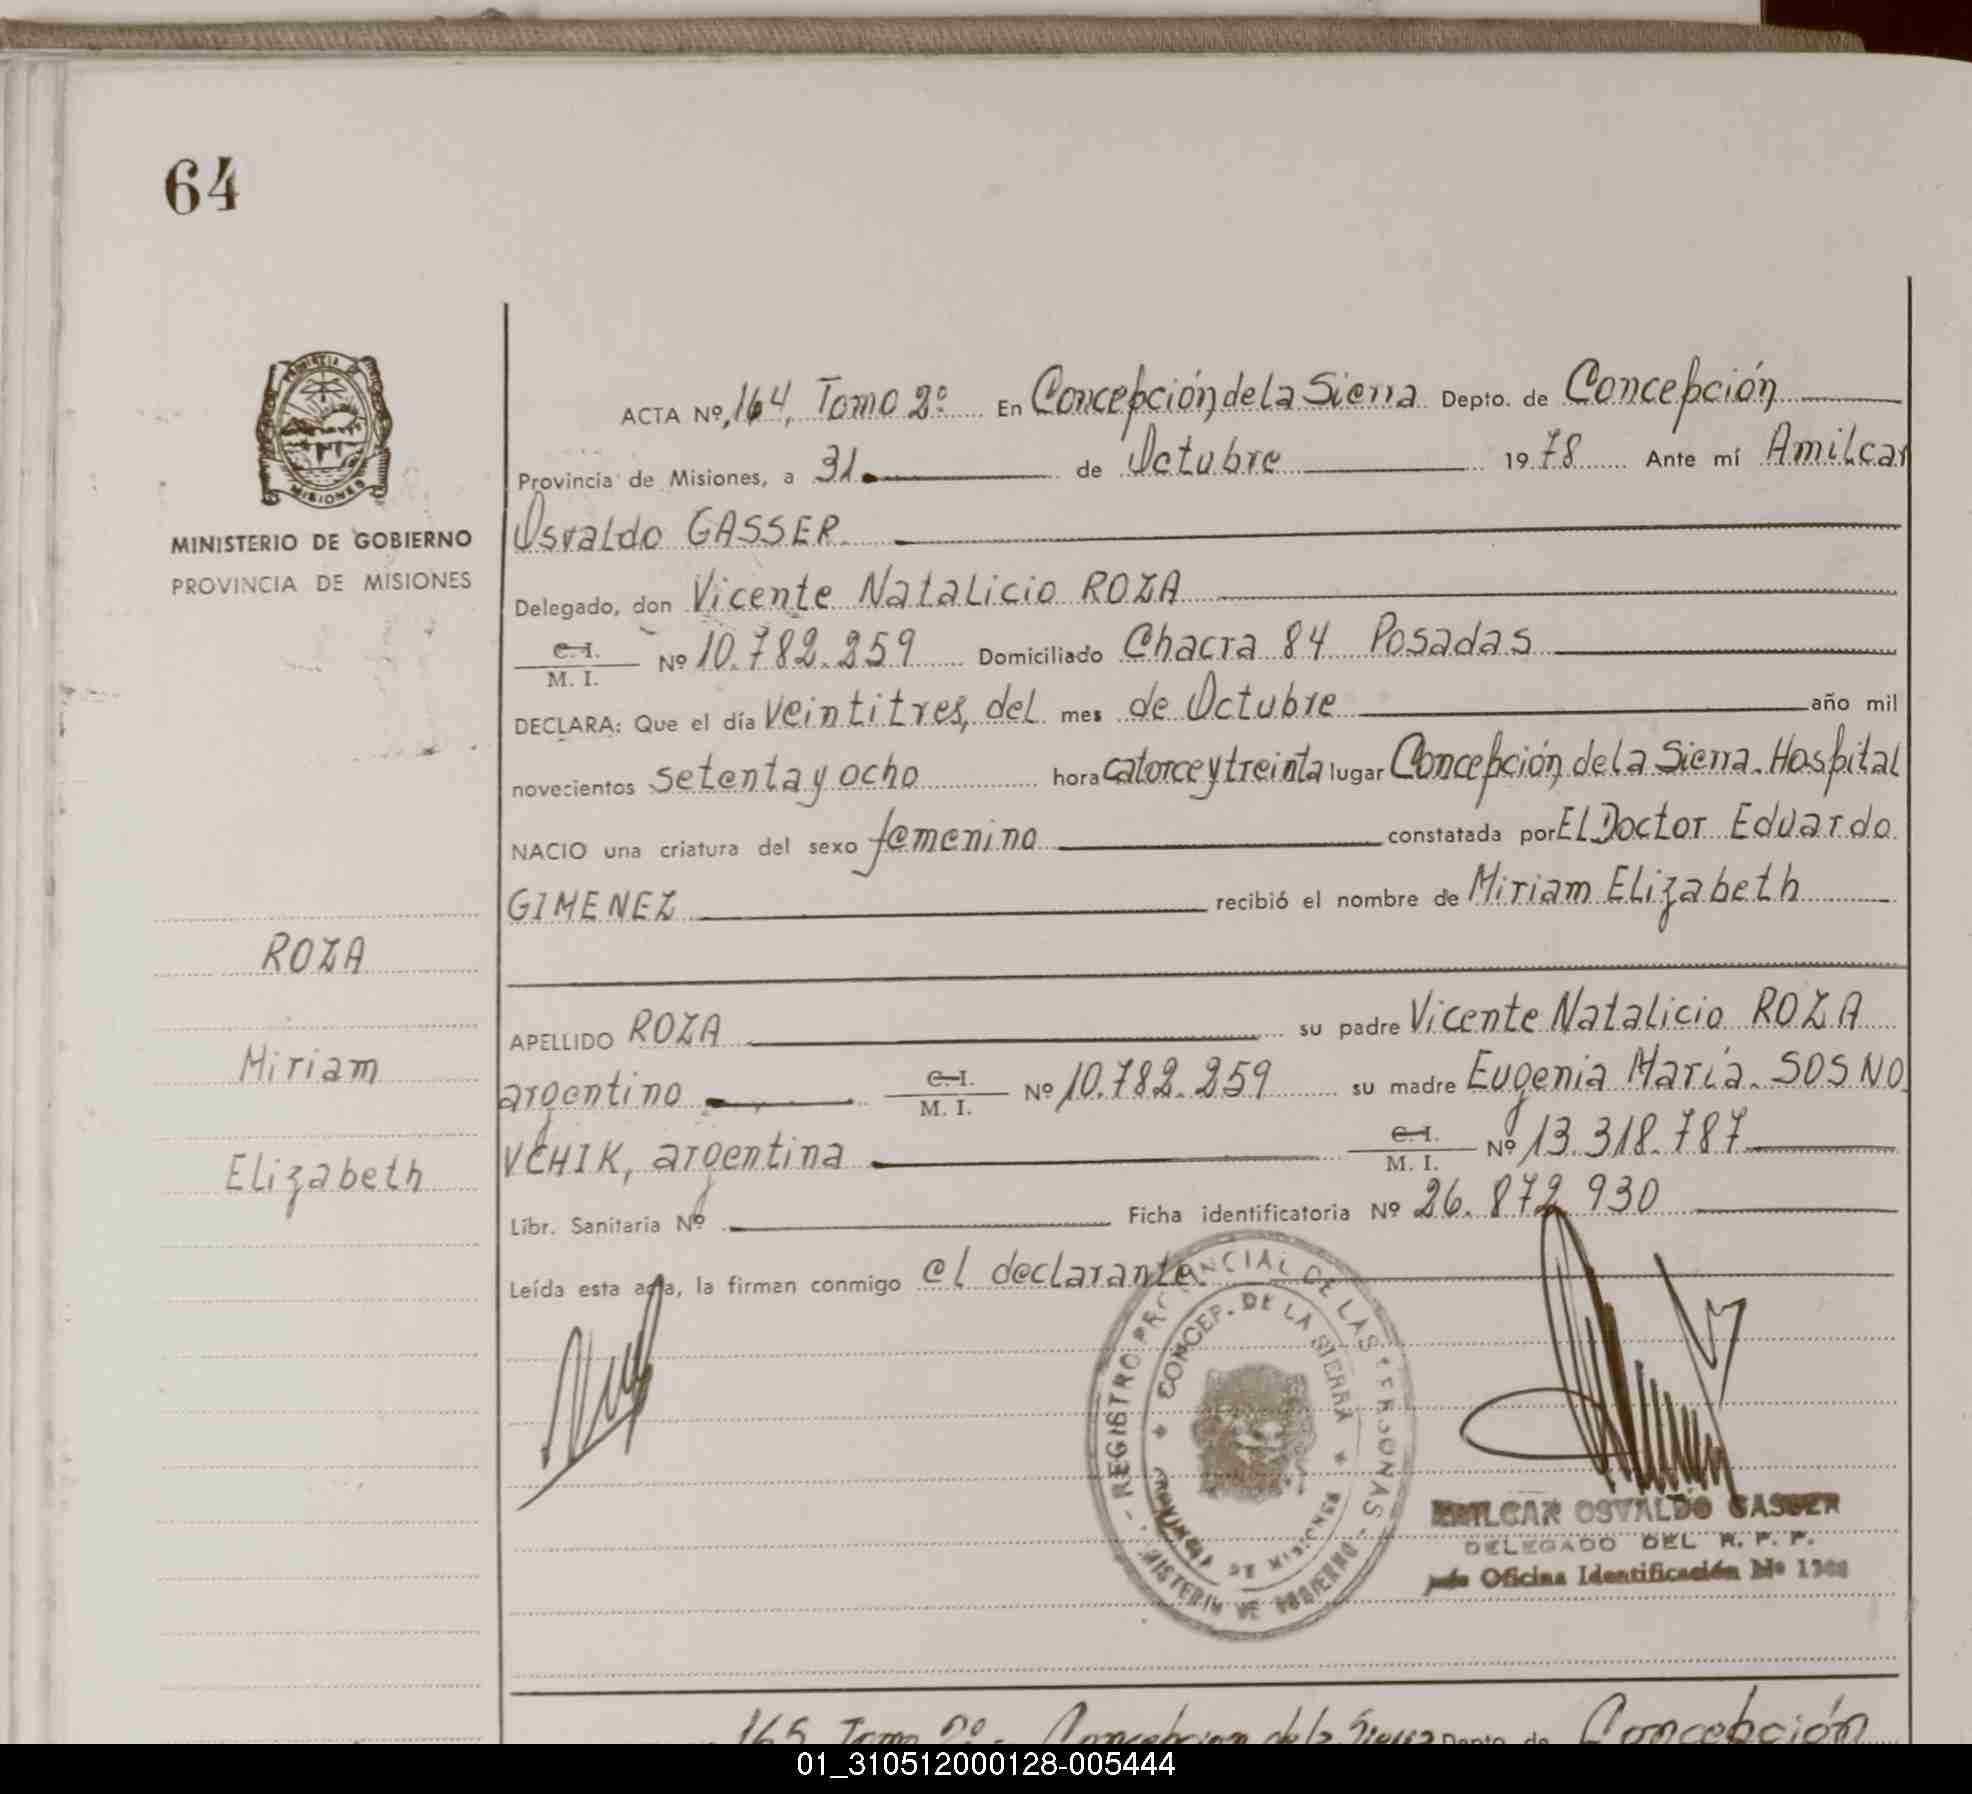 64
PROVINCIA DE
MISIONES
MINISTERIO DE GOBIERNO
PROVINCIA DE MISIONES
ROZA
Miriam
Elizabeth
ACTA Nº 164, Tomo 2º En Concepción de la Sierra Depto. de Concepción
Provincia de Misiones, a 31. de Octubre 1978 Ante mí Amilcar
Osvaldo GASSER.
Delegado, don Vicente Natalicio ROZA
C. I.
M. I. Nº 10.782.259 Domiciliado Chacra 84 Posadas
DECLARA: Que el día veintitres, del mes de Octubre año mil
novecientos setenta y ocho hora catorce y treinta lugar Concepción de la Sierra. Hospital
NACIO una criatura del sexo femenino constatada por El Doctor Eduardo
GIMENEZ recibió el nombre de Miriam Elizabeth
APELLIDO ROZA su padre Vicente Natalicio ROZA
argentino C. I.
M. I. Nº 10.782.259 su madre Eugenia María. SOSNO
VCHIK, argentina C. I.
M. I. Nº 13.318.787
Libr. Sanitaria Nº Ficha identificatoria Nº 26.872.930
Leída esta acta, la firman conmigo el declarante.
REGISTRO PROVINCIAL DE LAS PERSONAS
CONCEP. DE LA SIERRA
PROVINCIA DE MISIONES
MINISTERIO DE GOBIERNO
AMILCAR OSVALDO GASSER
DELEGADO DEL R. P. P.
Jefe Oficina Identificación Nº
165 Tomo 2º Concepcion de la Sierra Depto. de Concepción
01_310512000128-005444